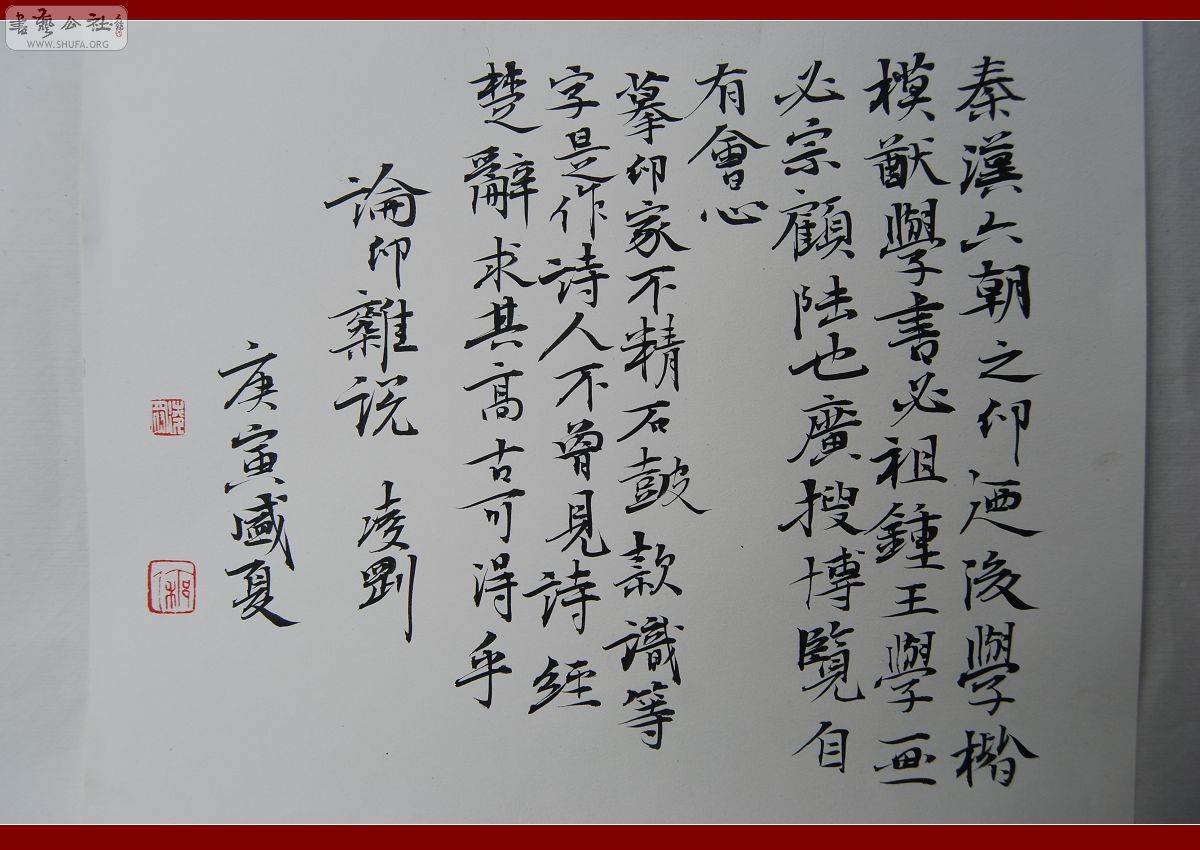 書藝公社
WWW.SHUFA.ORG
秦漢六朝之印廼後學楷
模猷學書必祖鍾王學画
必宗顧陸也廣搜博覽自
有會心
摹印家不精石鼓款識等
字是作詩人不曾見詩經
楚辭求其高古可得乎
論印雜説 凌剛
庚寅盛夏